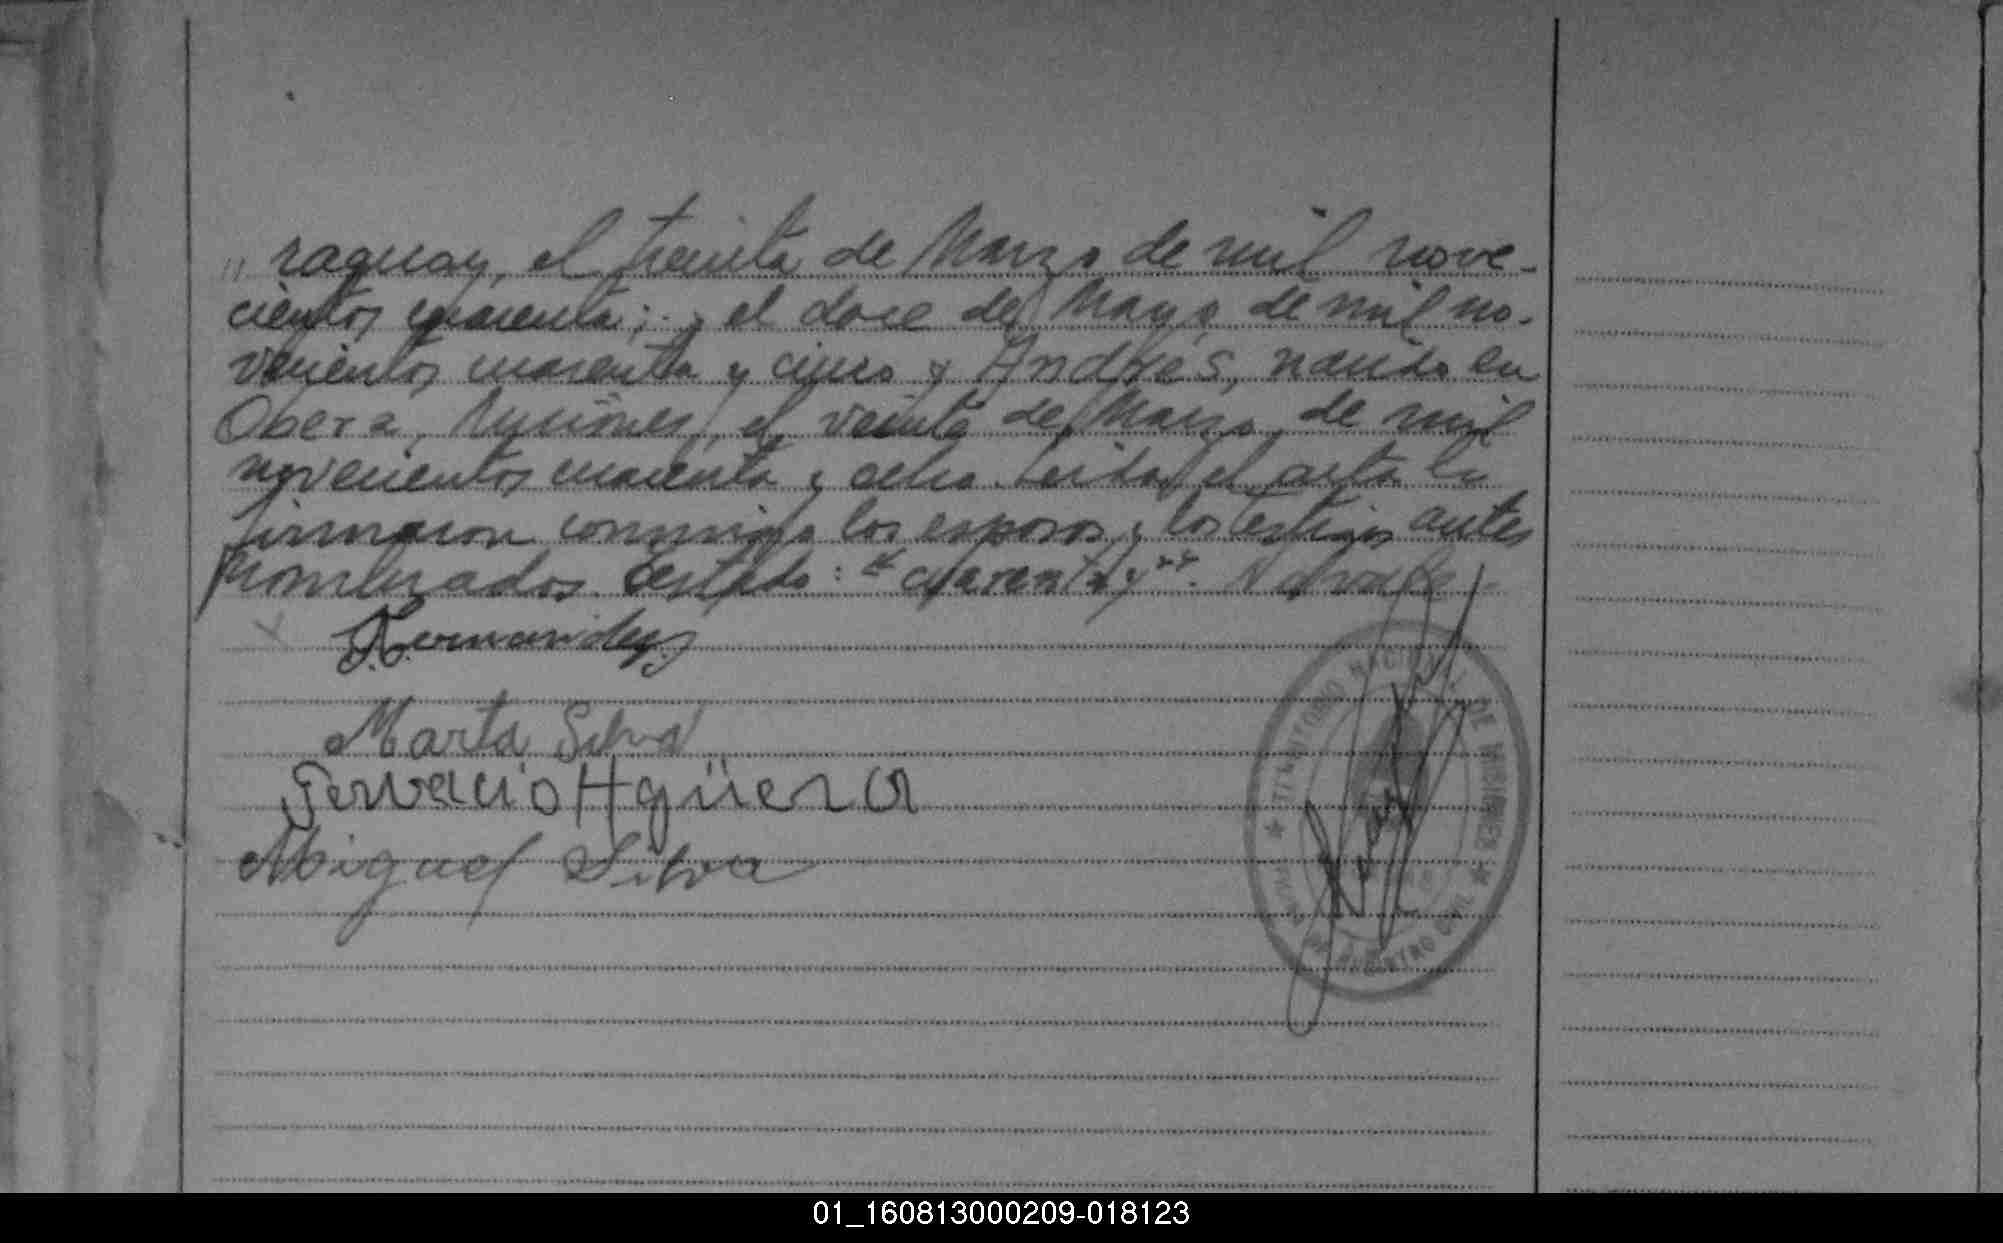 " raguay, el treinta de Marzo de mil nove-
cientos cuarenta; y el doce de Mayo de mil no-
vecientos cuarenta y cinco y Andrés, nacido en
Oberá, Misiones, el veinte de Marzo de mil
novecientos cuarenta y ocho. Leida el acta la
firmaron conmigo los esposos y los testigos antes
nombrados. Testado: "cuarenta y". No vale.-
Fernandez
Marta Silva
Servacio Agüero
Miguel Silva
TERRITORIO NACIONAL DE MISIONES
REGISTRO CIVIL
01_160813000209-018123